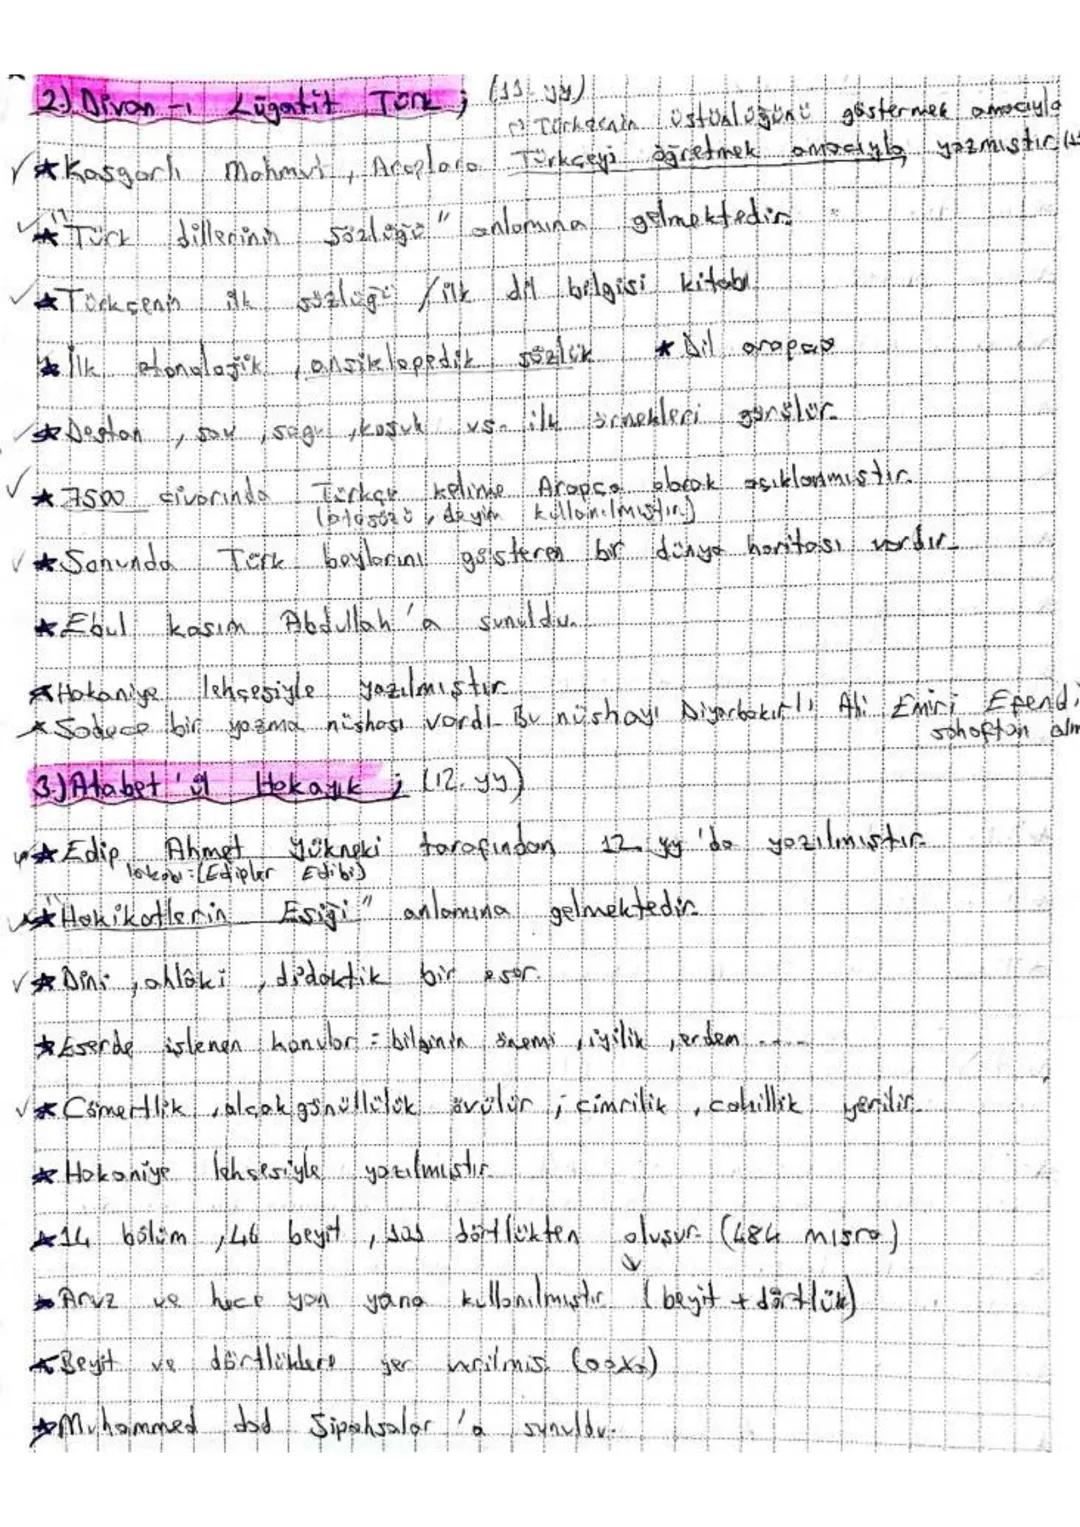 2) Divan-ı Lügatit Türk ; (11. yy)
Türkçenin üstünlüğünü göstermek amacıyla
★ Kaşgarlı Mahmut, Araplara Türkçeyi öğretmek amacıyla yazmıştır.
★ "Türk dillerinin sözlüğü" anlamına gelmektedir.
★ Türkçenin ilk sözlüğü / ilk dil bilgisi kitabı
★ İlk etonolojik, ansiklopedik sözlük ★ Dil arapça
★ Destan, sav, sagu, koşuk vs. ilk örnekleri görülür.
★ 7500 civarında Türkçe kelime Arapça olarak açıklanmıştır.
(atasözü, deyim kullanılmıştır)
★ Sonunda Türk boylarını gösteren bir dünya haritası vardır.
★ Ebul kasım Abdullah'a sunuldu.
★ Hakaniye lehçesiyle yazılmıştır.
★ Sadece bir yazma nüshası vardı. Bu nüshayı Diyarbakırlı Ali Emiri Efendi
sahaftan
3) Atabet'ül Hakayık ; (12. yy)
★ Edip Ahmet Yükneki tarafından 12. yy'da yazılmıştır.
lakabı: (Edipler Edibi)
★ "Hakikatlerin Eşiği" anlamına gelmektedir.
★ Dini, ahlâki, didaktik bir eser.
★ Eserde işlenen konular = bilginin önemi, iyilik, erdem ....
★ Cömertlik, alçak gönüllülük övülür ; cimrilik, cahillik yerilir.
★ Hakaniye lehçesiyle yazılmıştır.
★ 14 bölüm, 46 beyit, 101 dörtlükten oluşur. (484 mısra)
★ Aruz ve hece yan yana kullanılmıştır. (beyit + dörtlük)
★ Beyit ve dörtlüklere yer verilmiş. (aaxa)
★ Muhammed dad Sipahsalar'a sunuldu.